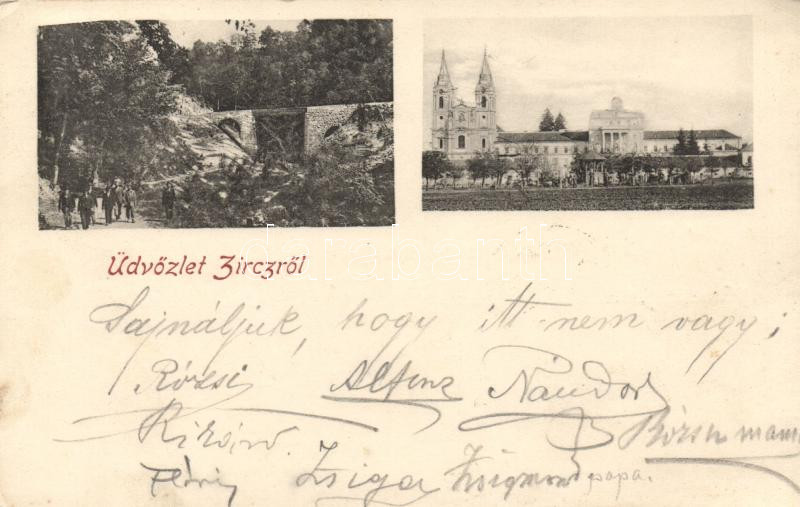 Üdvözlet Zirczről
darabanth
Sajnáljuk, hogy itt nem vagy;
Rózsi Alfonz Nándor
Rikárd. Bózsi mama
Flóri Zsiga Zsigmond papa.